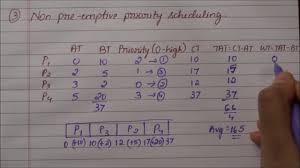 ③ Non pre-emptive priority scheduling
AT BT Priority (0-high) CT TAT=CT-AT WT=TAT-BT
P1 0 10 2 → ① 10 10 0
P2 2 5 1 → ③ 17 15
P3 3 2 0 → ② 12
P4 5 20 3 → ④ 37
37 66
4
P1 P3 P2 P4
0 (+10) 10(+2) 12 (+5) 17(+20) 37
Avg = 16.5